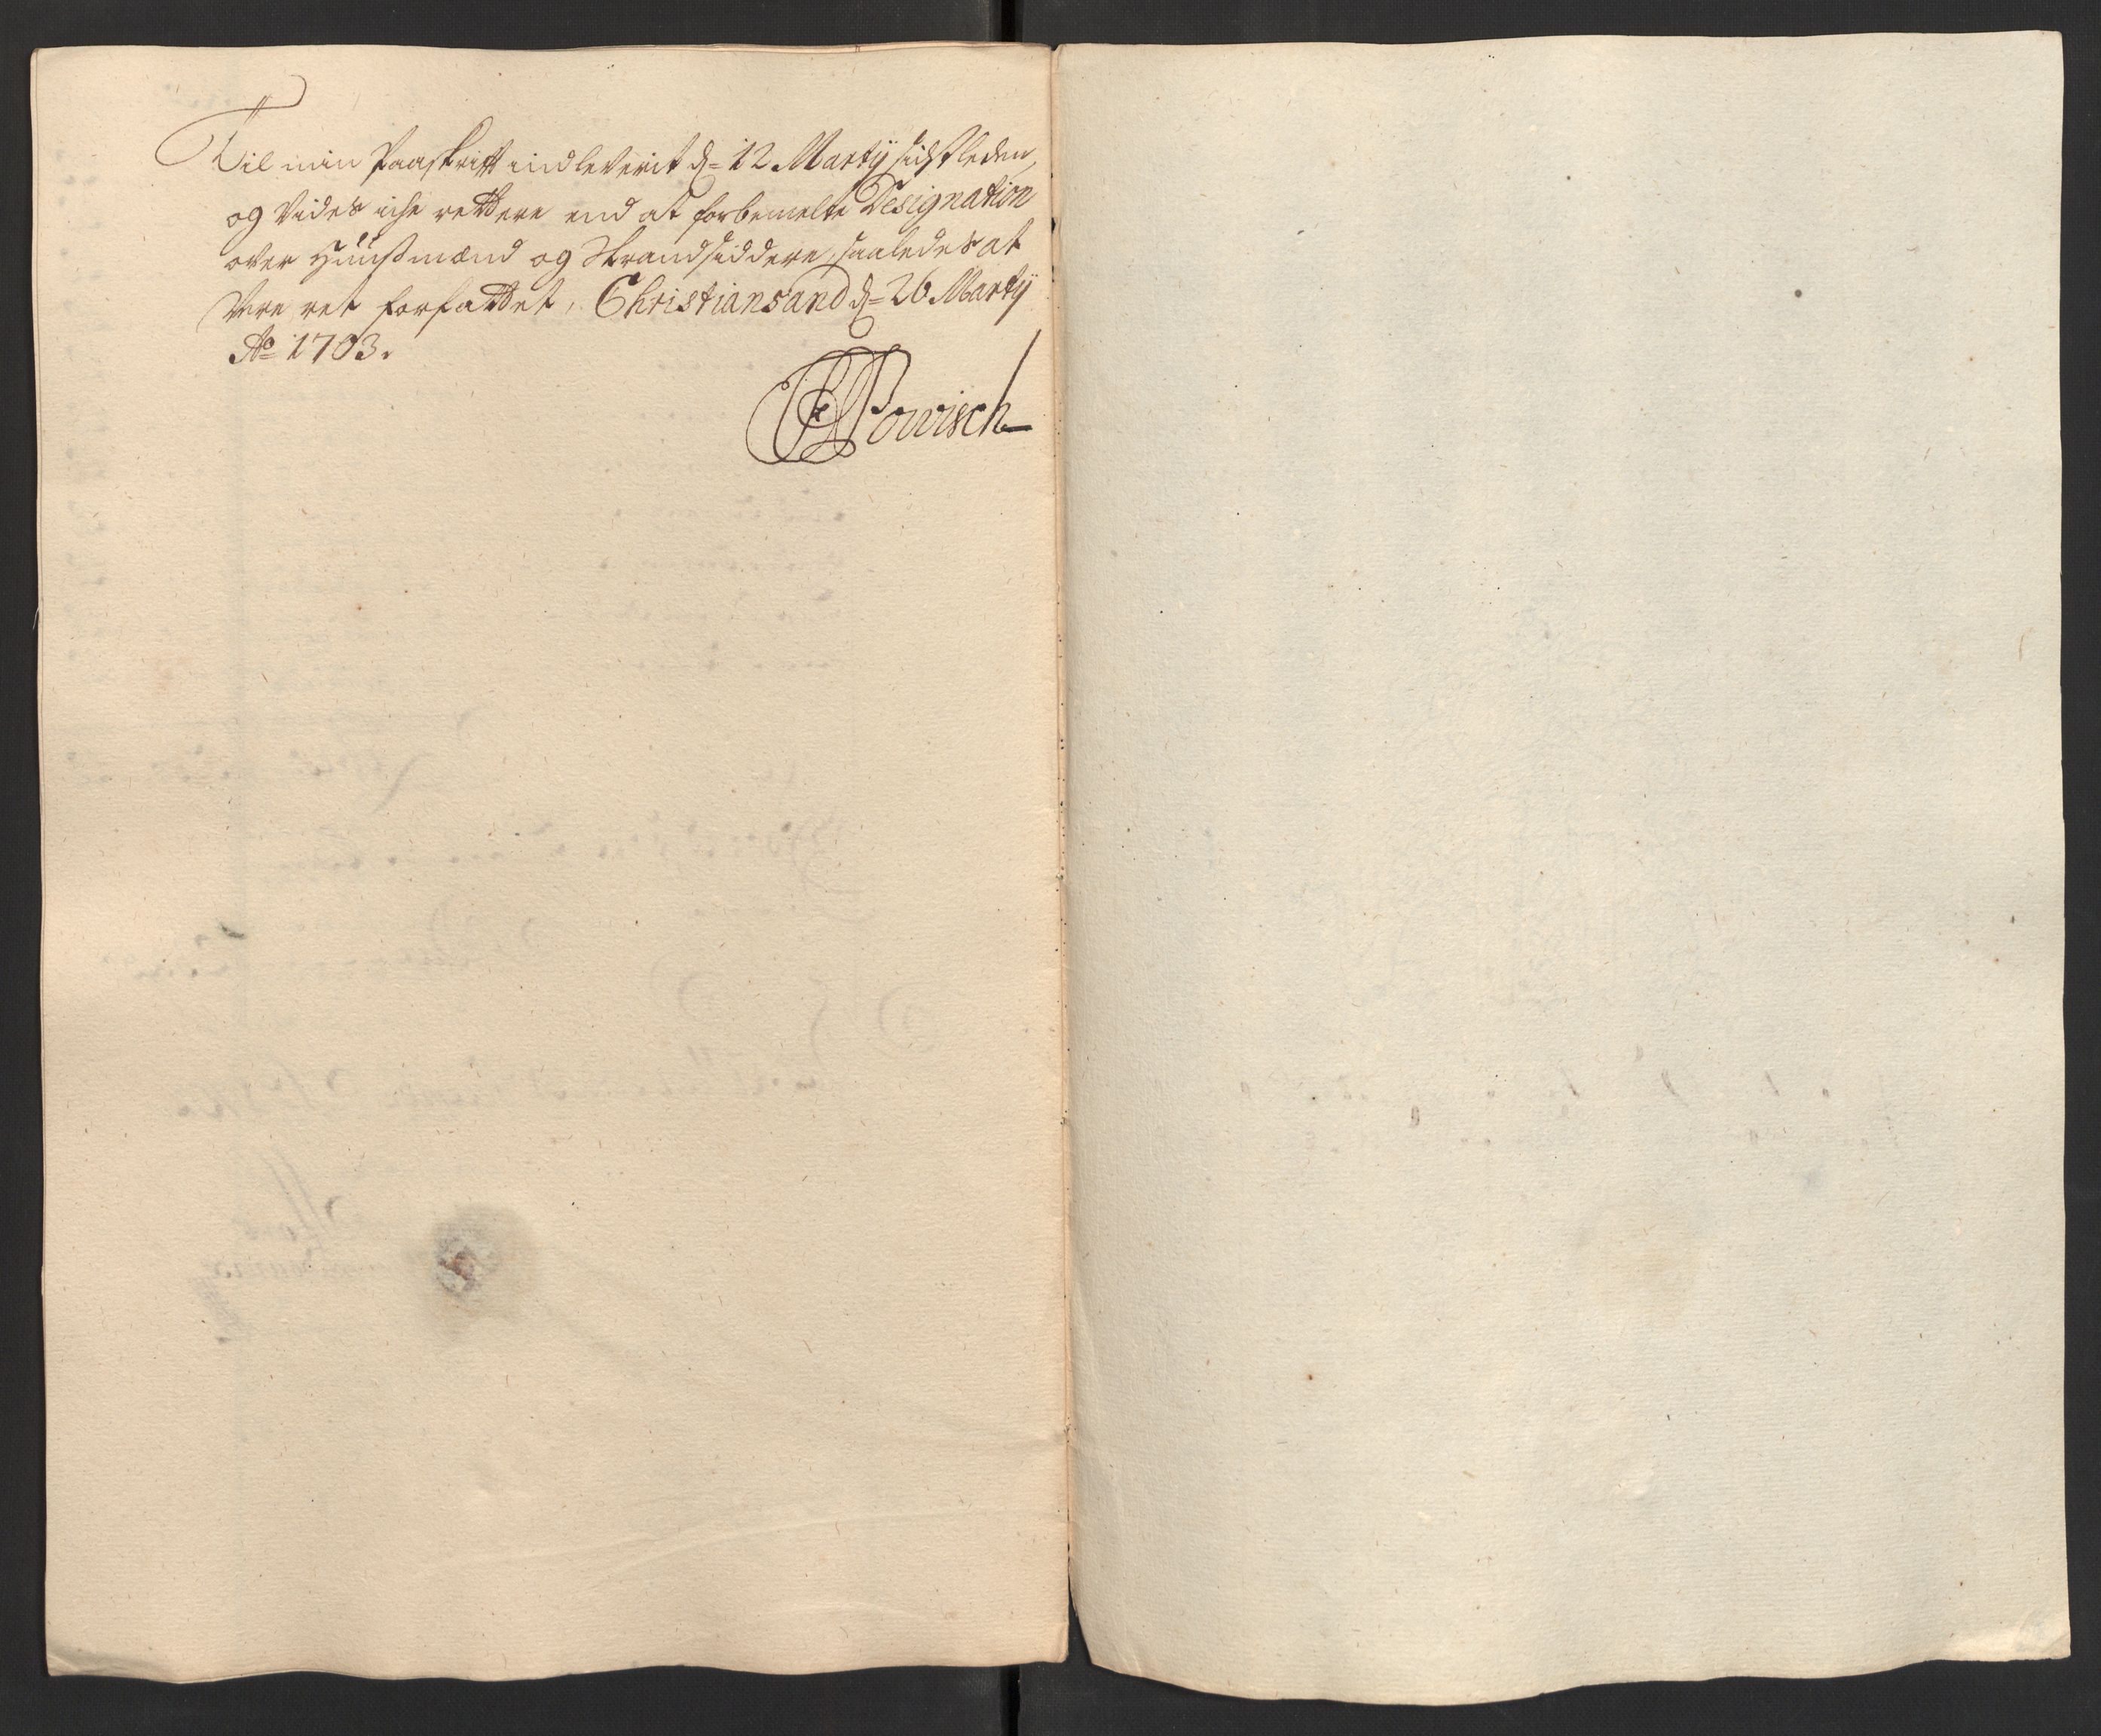 Til min Paaskrift indleverit d= 12 Martij sidstleden,
og Vides iche rettere end at forbemelte Designation
over Huusmænd og Strandsiddere, saaledes at
Vere ret forfattet, Christiansand d= 26 Martij
Ao 1703.
Powisch